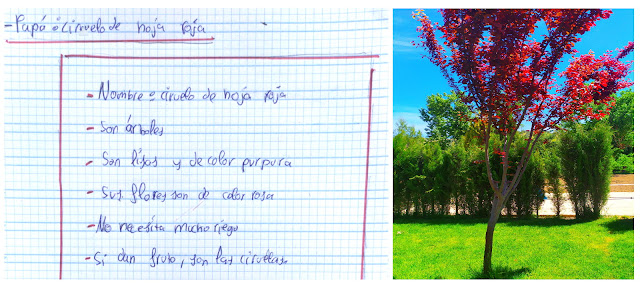 -Papá: ciruelo de hoja roja
- Nombre: ciruelo de hoja roja
- Son árboles
- Son lisos y de color purpura
- Sus flores son de color rosa
- No necesita mucho riego
- Si dan fruto, son las ciruelas.